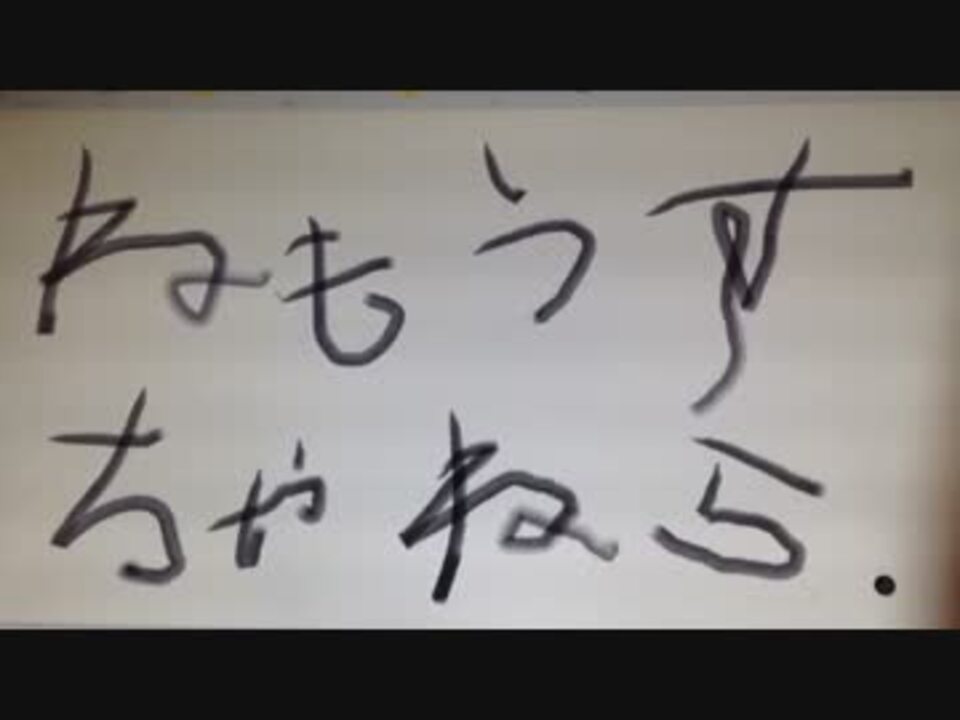 ねもうす
ちゃねる.